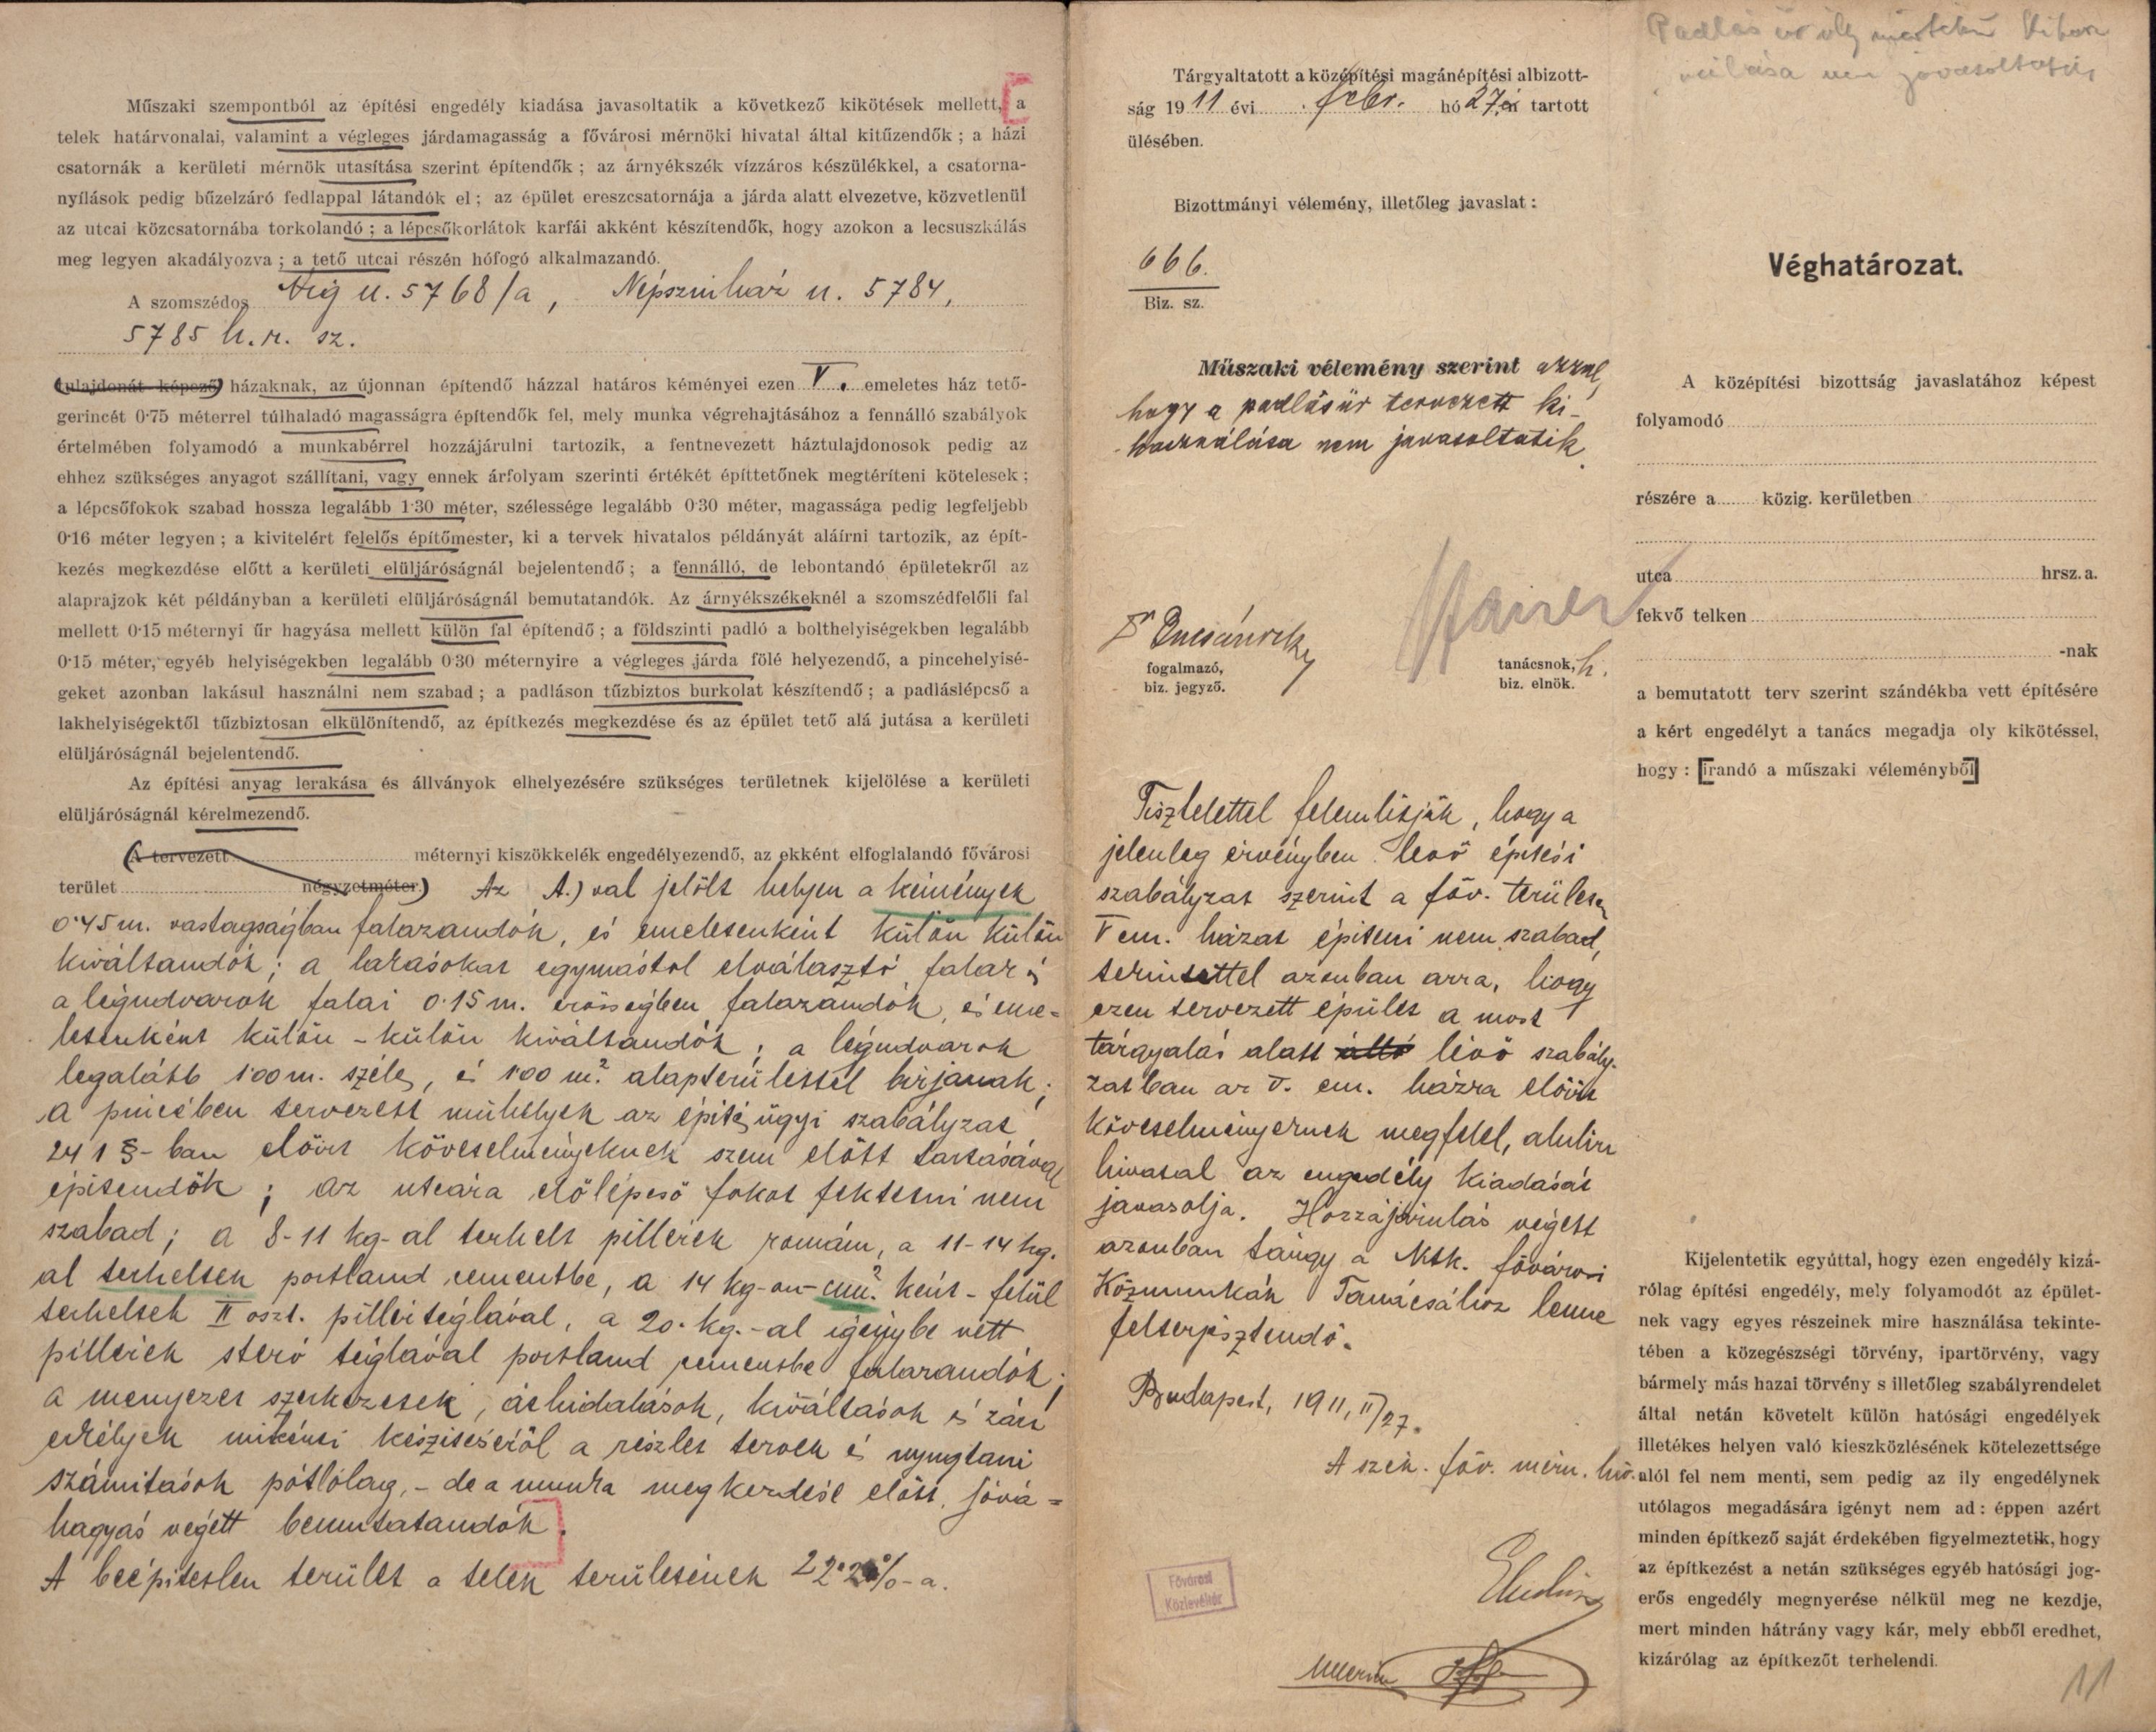 Műszaki szempontból az építési engedély kiadása javasoltatik a következő kikötések mellett, a
telek határvonalai, valamint a végleges járdamagasság a fővárosi mérnöki hivatal által kitűzendők ; a házi
csatornák a kerületi mérnök utasítása szerint építendők ; az árnyékszék vízzáros készülékkel, a csatorna-
nyílások pedig bűzelzáró fedlappal látandók el ; az épület ereszcsatornája a járda alatt elvezetve, közvetlenül
az utcai közcsatornába torkolandó ; a lépcsőkorlátok karfái akként készítendők, hogy azokon a lecsuszkálás
meg legyen akadályozva ; a tető utcai részén hófogó alkalmazandó.
A szomszédos Víg u. 5768/a, Népszinház u. 5784,
5785 h.r. sz.
(tulajdonát képező) házaknak, az újonnan építendő házzal határos kéményei ezen V. emeletes ház tető-
gerincét 0·75 méterrel túlhaladó magasságra építendők fel, mely munka végrehajtásához a fennálló szabályok
értelmében folyamodó a munkabérrel hozzájárulni tartozik, a fentnevezett háztulajdonosok pedig az
ehhez szükséges anyagot szállítani, vagy ennek árfolyam szerinti értékét építtetőnek megtéríteni kötelesek ;
a lépcsőfokok szabad hossza legalább 1·30 méter, szélessége legalább 0·30 méter, magassága pedig legfeljebb
0·16 méter legyen ; a kivitelért felelős építőmester, ki a tervek hivatalos példányát aláírni tartozik, az épít-
kezés megkezdése előtt a kerületi elüljáróságnál bejelentendő ; a fennálló, de lebontandó épületekről az
alaprajzok két példányban a kerületi elüljáróságnál bemutatandók. Az árnyékszékeknél a szomszédfelőli fal
mellett 0·15 méternyi űr hagyása mellett külön fal építendő ; a földszinti padló a bolthelyiségekben legalább
0·15 méter, egyéb helyiségekben legalább 0·30 méternyire a végleges járda fölé helyezendő, a pincehelyisé-
geket azonban lakásul használni nem szabad ; a padláson tűzbiztos burkolat készítendő ; a padláslépcső a
lakhelyiségektől tűzbiztosan elkülönítendő, az építkezés megkezdése és az épület tető alá jutása a kerületi
elüljáróságnál bejelentendő.
Az építési anyag lerakása és állványok elhelyezésére szükséges területnek kijelölése a kerületi
elüljáróságnál kérelmezendő.
(A tervezett méternyi kiszökkelék engedélyezendő, az ekként elfoglalandó fővárosi
terület négyzetméter.) Az A.) val jelölt helyen a kémények
0·45 m. vastagságban falazandók, és emeletenként külön külön
kiváltandók ; a lakásokat egymástol elválasztó falak és
a légudvarok falai 0·15 m. erősségben falazandók, és eme=
letenként külön - külön kiváltandók ; a légudvarok
legalább 1·00 m. széles, és 1·00 m² alapterülettel birjanak ;
a pincében tervezett műhelyek az épitésügyi szabályzat
241 §-ban előirt követelményeknek szem előtt tartásával
épitendők ; az utcára előlépcső fokot fektetni nem
szabad ; a 8-11 kg-al terhelt pillérek román, a 11-14 kg.
al terheltek portland cementbe, a 14 kg-on-cm² ként - felül
terheltek II oszt. pillértéglával, a 20. kg.-al igénybe vett
pillérek sterő téglával portland cementbe falazandók ;
a menyezet szerkezetek, áthidalások, kiváltások és zárt
erkélyek mikénti készitéséről a részlet tervek és nyugtani
számitások pótlólag, - de a munka megkezdése előtt, jóvá=
hagyás végett bemutatandók.
A beépitetlen terület a telek területének 22·2 %-a.
Tárgyaltatott a középítési magánépítési albizott-
ság 1911 évi febr. hó 27.én tartott
ülésében.
Bizottmányi vélemény, illetőleg javaslat :
666.
Biz. sz.
Műszaki vélemény szerint azzal,
hogy a padlásűr tervezett ki-
használása nem javasoltatik.
fogalmazó,
biz. jegyző.
tanácsnok, h.
biz. elnök.
Tisztelettel felemlitjük, hogy a
jelenleg érvényben levő épitési
szabályzat szerint a főv. területen
V em. házat épiteni nem szabad,
tekintettel azonban arra, hogy
ezen tervezett épület a most
tárgyalás alatt álló lévő szabály-
zatban az V. em. házra előirt
követelményeknek megfelel, alulirt
hivatal az engedély kiadását
javasolja. Hozzájárulás végett
azonban tárgy a Ntk. fővárosi
Közmunkák Tanácsához lenne
felterjesztendő.
Budapest, 1911, II/27.
A szék. főv. mérn. hiv.
Fővárosi
Közlevéltár
Padlás űr ily mértékű kihasz
nálása nem javasoltatik
Véghatározat.
A középítési bizottság javaslatához képest
folyamodó
részére a közig. kerületben
utca hrsz. a.
fekvő telken
-nak
a bemutatott terv szerint szándékba vett építésére
a kért engedélyt a tanács megadja oly kikötéssel,
hogy : [írandó a műszaki véleményből]
Kijelentetik egyúttal, hogy ezen engedély kizá-
rólag építési engedély, mely folyamodót az épület-
nek vagy egyes részeinek mire használása tekinte-
tében a közegészségi törvény, ipartörvény, vagy
bármely más hazai törvény s illetőleg szabályrendelet
által netán követelt külön hatósági engedélyek
illetékes helyen való kieszközlésének kötelezettsége
alól fel nem menti, sem pedig az ily engedélynek
utólagos megadására igényt nem ad : éppen azért
minden építkező saját érdekében figyelmeztetik, hogy
az építkezést a netán szükséges egyéb hatósági jog-
erős engedély megnyerése nélkül meg ne kezdje,
mert minden hátrány vagy kár, mely ebből eredhet,
kizárólag az építkezőt terhelendi.
11